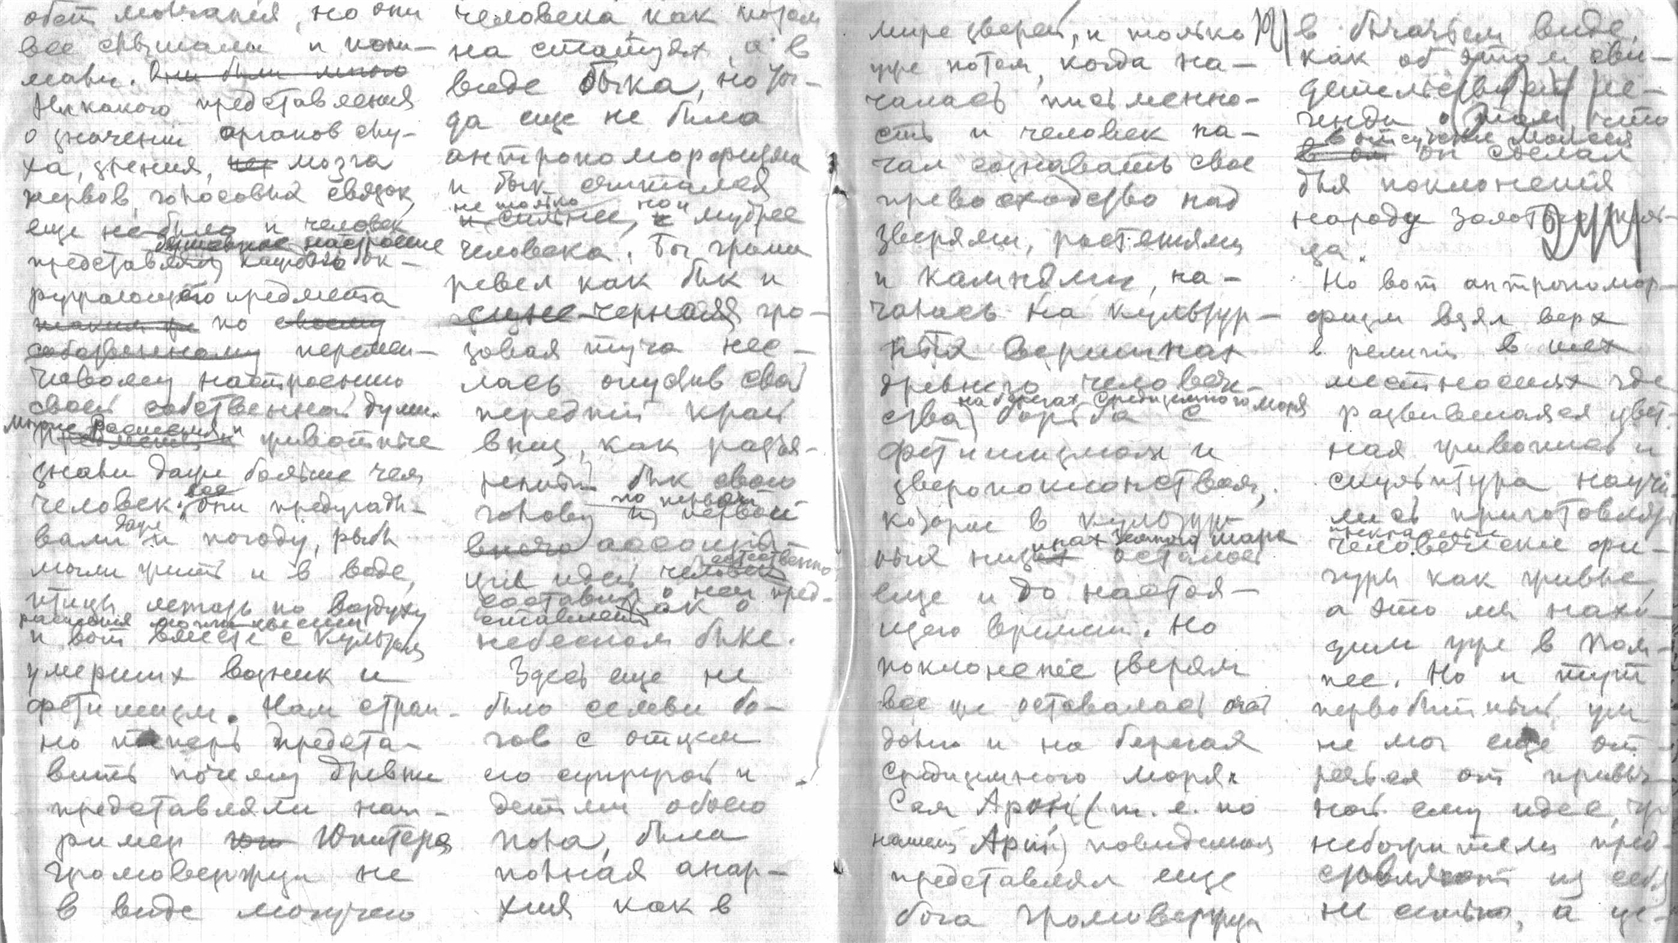 обет молчания, но они
все слышали и пони-
мали. Они были много
Никакого представления
о значении органов слу-
ха, зрения, мозга
нервов, голосовых связок
еще не было и человек
душевное настроение
представлял каждого ок-
ружающего предмета
по своему
собственному перемен-
чивому настроению
своей собственной души.
Многие растения и
животные
знали даже больше чем
человек: все они предугады-
вали даже и погоду, рыбы
могли жить и в воде,
птицы летать по воздуху
растения
и вот вместе с культом
умерших возник и
фетишизм. Нам стран-
но теперь предста-
вить почему древние
представляли нап-
ример Юпитера
громовержца не
в виде могучего
человека как потом
на статуях, а в
виде быка, но тог-
да еще не было
антропоморфизма
и бык считался
не только но и
сильнее, и мудрее
человека. Бог грома
ревел как бык и
черная гро-
зовая туча нес-
лась опустив свой
передний край
вниз, как разъя-
ренный бык свою
голову и по первой
ассоциа-
ции идей человек естественно
составил о ней пред-
ставление как о
небесном быке.
Здесь еще не
было семьи бо-
гов с отцом
его супругой и
детьми обоего
пола, была
полная анар-
хия как в
мире зверей, и только
уже потом, когда на-
чалась письменно-
сть и человек на-
чал сознавать свое
превосходство над
зверями, растениями
и камнями, на-
чалась на культур-
ных вершинах
древнего человече-
ства на берегах Средиземного моря
борьба с
фетишизмом и
зверопоклонством,
которые в культур-
ных низах земного шара
остались
еще и до настоя-
щего времени. Но
поклонение зверям
все же оставалось очень
долго и на берегах
Средиземного моря.
Сам Арон (т. е. по
нашему Арий) повидимому
представлял еще
бога громовержца
в бычьем виде,
как об этом сви-
детельствует ле-
генда о том, что
в отсутствие Моисея
он сделал
для поклонения
народу золотого тель-
ца.
Но вот антропомор-
физм взял верх
в религии в тех
местностях где
развившаяся цвет-
ная живопись и
скульптура научи-
лись приготовлять
прекрасные
человеческие фи-
гуры как живые,
а это мы нахо-
дим уже в Пом-
пее. Но и тут
первобытный ум
не мог еще от-
решиться от привыч-
ной ему идеи, что
небожители пред-
ставляют из себя
не семью, а це-